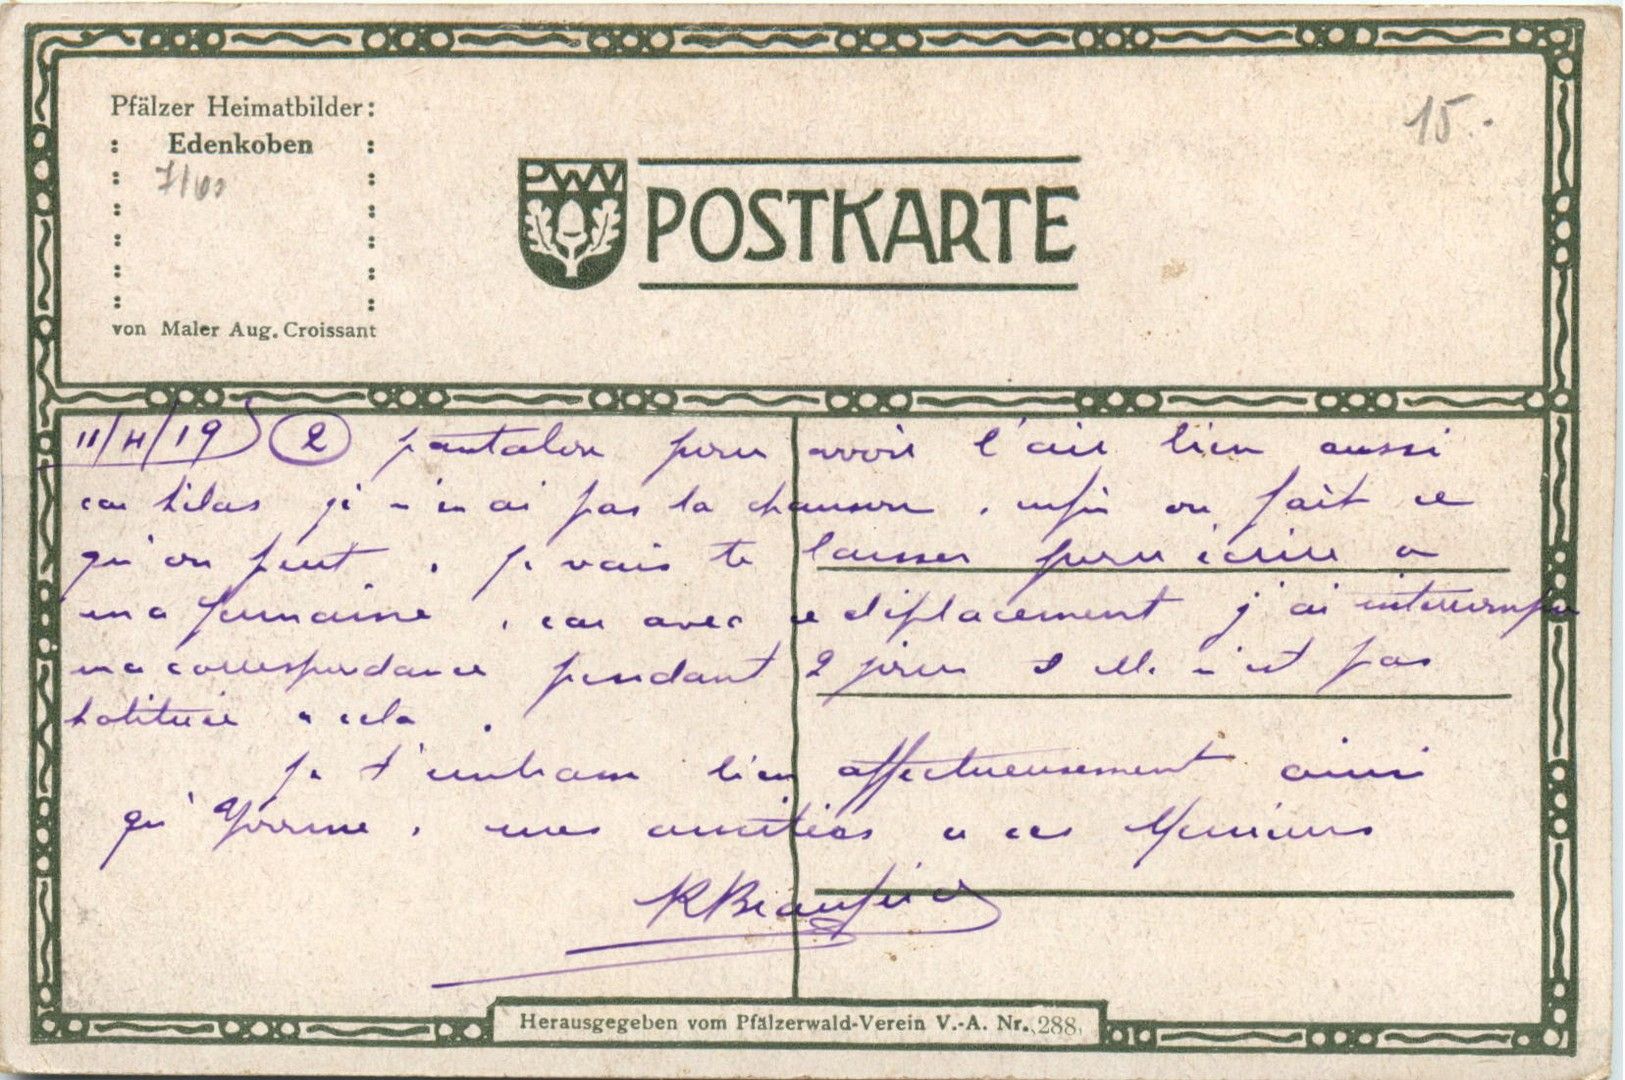 Pfälzer Heimatbilder:
Edenkoben
von Maler Aug. Croissant
15.-
PWV
POSTKARTE
11/4/19 2 pantalon pour avoir l'air bien aussi
car hélas je n'en ai pas la chanson. enfin on fait ce
qu'on peut. Je vais te laisser pour écrire a
ma, car avec ce déplacement j'ai interrompu
ma correspondance pendant 2 jours et elle n'est pas
habituée a cela.
Je t'embrasse bien affectueusement ainsi
qu'Yvonne. mes amitiés a ces Messieurs
Herausgegeben vom Pfälzerwald-Verein V.-A. Nr. 288.